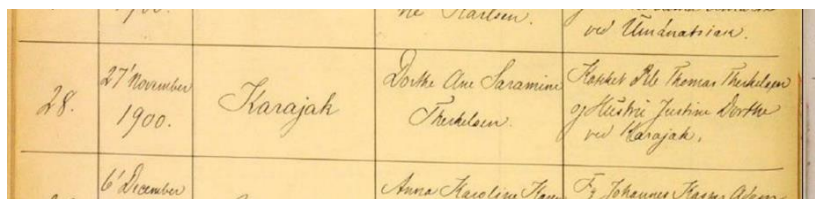 ne Karlsen.
ved Umánatsiak.
28.
27' November
1900.
Karajak
Dorthe Ane Saramine
Therkelsen.
Thomas Therkelsen
og Hustru Justine Dorthe
ved Karajak.
6' December
Anna Karoline
Johannes